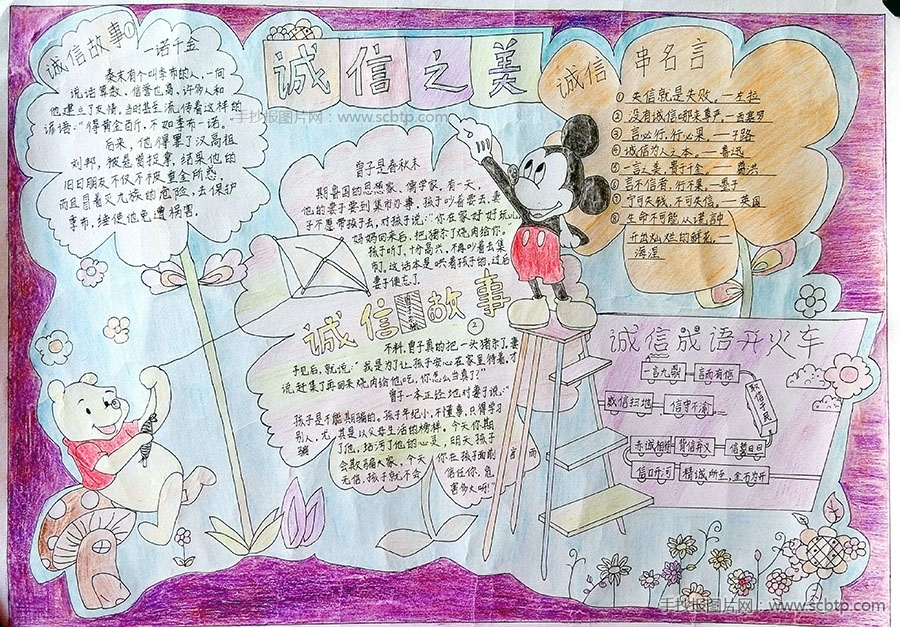 诚信之美
手抄报图片网：www.scbtp.com
诚信故事①
一诺千金
秦末有个叫季布的人，一向
说话算数，信誉也高，许多人和
他建立了友情。当时甚至流传着这样的
谚语："得黄金百斤，不如季布一诺。
后来，他得罪了汉高祖
刘邦，被悬赏投拿，结果他的
旧日朋友不仅不被重金所惑，
而且冒着灭九族的危险，去保护
季布，
使他免遭祸害。
曾子是春秋末
期鲁国的思想家、儒学家。有一天，
他的妻子要到集市办事，孩子吵着要去，妻
子不愿带孩子去，对孩子说："你在家好好玩儿
妈妈回来后，把猪杀了烧肉给你。
孩子听了，十分高兴，不再吵着去集
市了。这话本是哄着孩子的，过后
妻子便忘了
诚信故事
②
不料，曾子真的把一头猪杀了，妻
子把后，就说："我是为了让孩子安心在家里待着，才
说赶集了再回来烧肉给他吃，你怎么当真？"
曾子一本正经地对妻子说："
孩子是不能期骗的。孩子年纪小，不懂事，只得学习
别人，尤其是以父母生活的榜样，今天你期
骗了他，玷污了他的心灵，明天孩子
会欺骗人家，今天你在孩子面前言而
无信，孩子就不会信任你，危
害多大呀！"
诚信一串名言
①失信就是失败。—左拉
②没有诚信哪来尊严。—西塞罗
③言必行，行必果。—子路
④诚信为人之本。—鲁迅
⑤一言之美，贵于千金。—葛洪
⑥言不信者，行不果。—墨子
⑦宁可失钱，不可失信。—英国
⑧生命不可能从谎言中
开出灿烂的鲜花。—
海涅
诚信成语开火车
一言九鼎 言而有信
威信扫地 信守不渝
取信于民
赤诚相待 背信弃义 信誓旦旦
信口开河 精诚所至，金石为开
手抄报图片网：www.scbtp.com